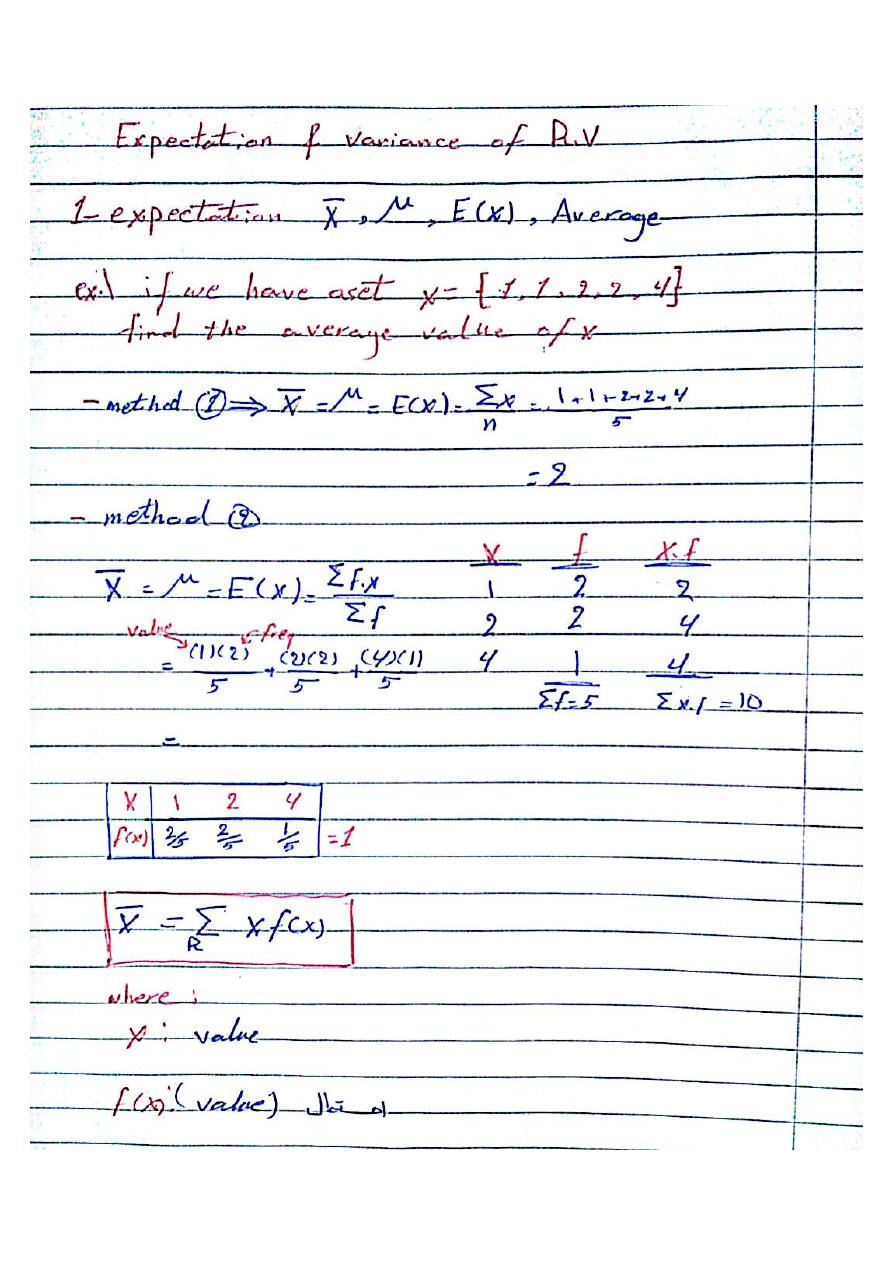 Expectation & variance of R.V
1- expectation X̄, μ, E(x), Average
ex.\ if we have aset x= {1, 1, 2, 2, 4}
find the average value of x
- method ① ⇒ X̄ = μ = E(x) = Σx/n = 1+1+2+2+4/5
= 2
- method ②
X f x.f
X̄ = μ = E(x) = Σf.x/Σf 1 2 2
value freq 2 2 4
= (1)(2)/5 + (2)(2)/5 + (4)(1)/5 4 1 4
Σf=5 Σx.f = 10
=
X 1 2 4
f(x) 2/5 2/5 1/5 =1
X̄ = Σ_R x f(x)
where :
x : value
f(x): (value) احتمال ال